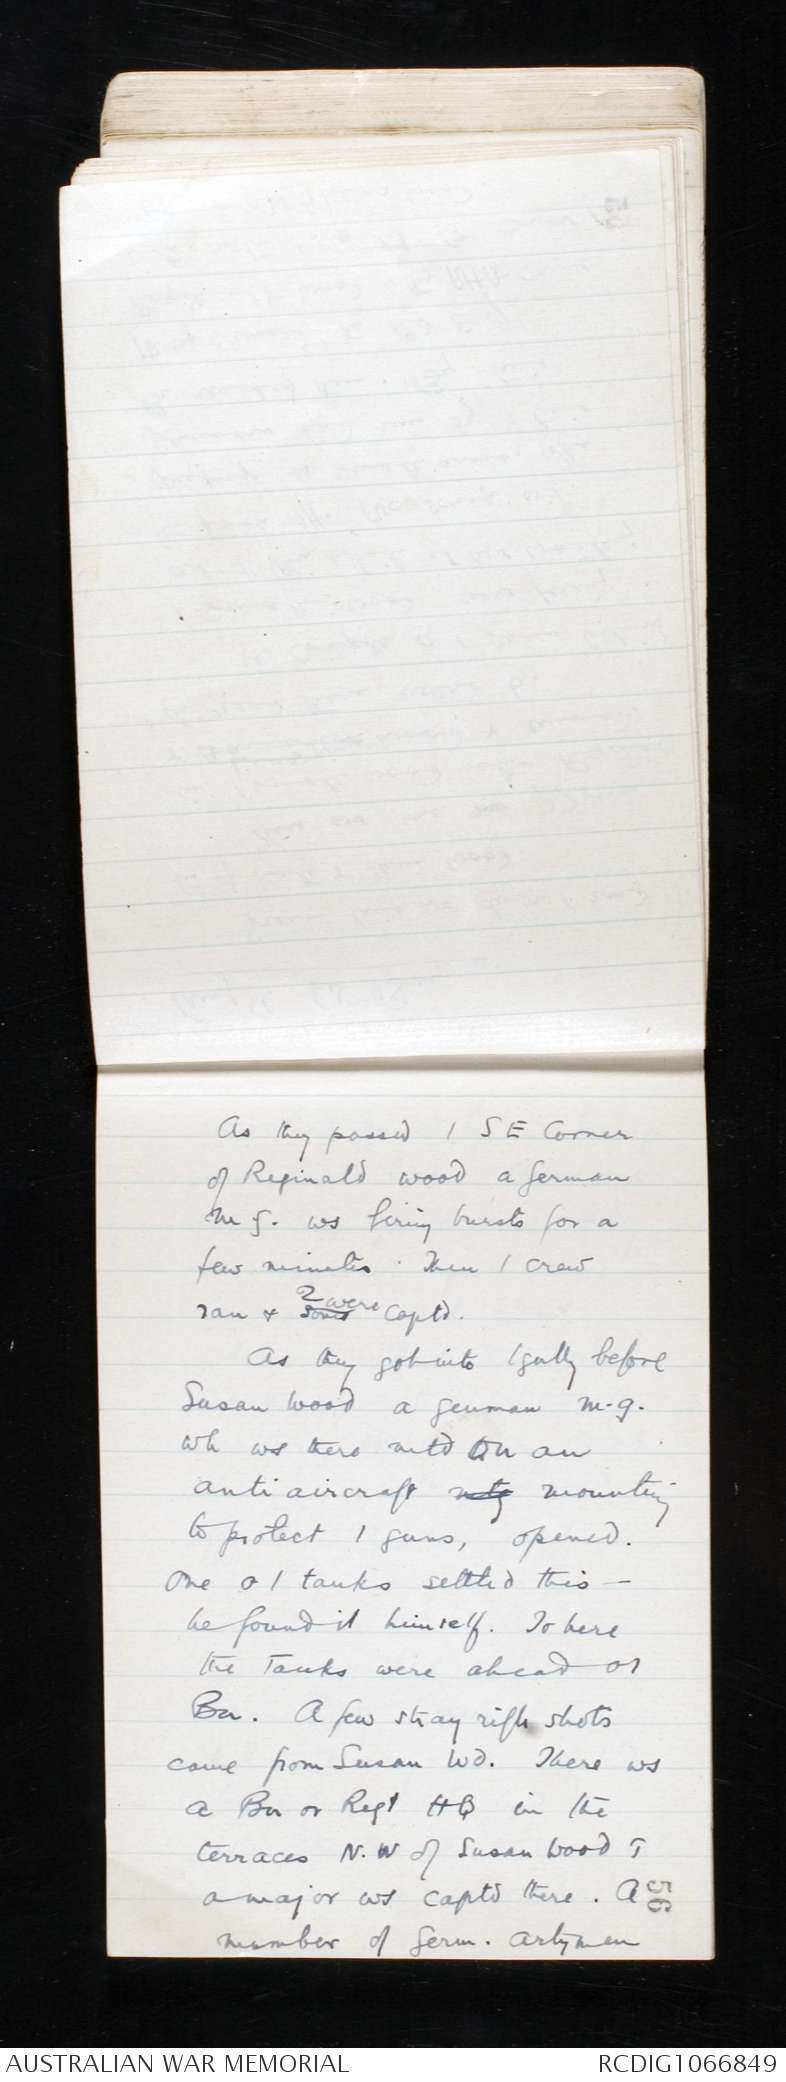 As they passed / SE Corner
of Reginald wood a German
m g. ws firing bursts for a
few minutes. Then / crew
ran & some 2 were captd.
As they got into / gully before
Susan Wood a german m.g.
wh ws there mtd on an
anti aircraft mtg mounting
to protect / guns, opened.
One o / tanks settled this —
he found it himself. To here
the Tanks were ahead o /
Bn. A few stray rifle shots
came from Susan Wd. There ws
a Bn or Regt HQ in the
terraces N.W of Susan Wood &
a major ws captd there. A
number of Germ. artymen
56
AUSTRALIAN WAR MEMORIAL
RCDIG1066849